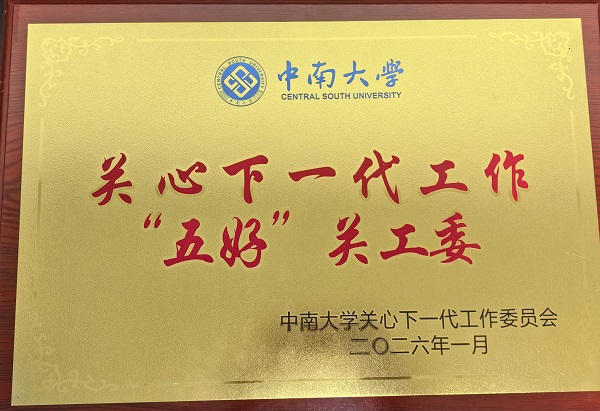 中南大学
CENTRAL SOUTH UNIVERSITY
关心下一代工作
“五好”关工委
中南大学关心下一代工作委员会
二〇二六年一月